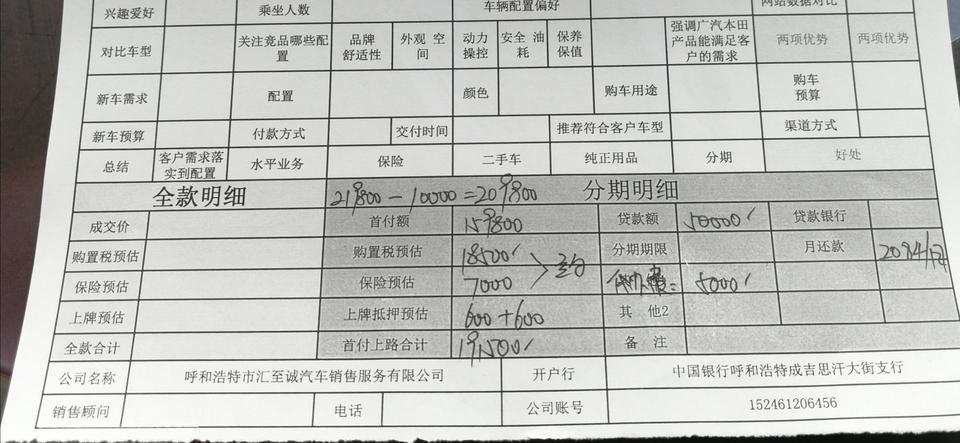 兴趣爱好 乘坐人数 车辆配置偏好 网站数据对比
对比车型 关注竞品哪些配置 品牌舒适性 外观 空间 动力操控 安全 油耗 保养保值 强调广汽本田产品能满足客户的需求 两项优势 两项优势
新车需求 配置 颜色 购车用途 购车预算
新车预算 付款方式 交付时间 推荐符合客户车型 渠道方式
总结 客户需求落实到配置 水平业务 保险 二手车 纯正用品 分期 好处
全款明细 219800-10000=209800 分期明细
成交价 首付额 159800 贷款额 50000 贷款银行
购置税预估 购置税预估 18500 分期期限 月还款 2084/
保险预估 保险预估 7000 5000
上牌预估 上牌抵押预估 600+600 其 他2
全款合计 首付上路合计 191500 备 注
公司名称 呼和浩特市汇至诚汽车销售服务有限公司 开户行 中国银行呼和浩特成吉思汗大街支行
销售顾问 电话 公司账号 152461206456